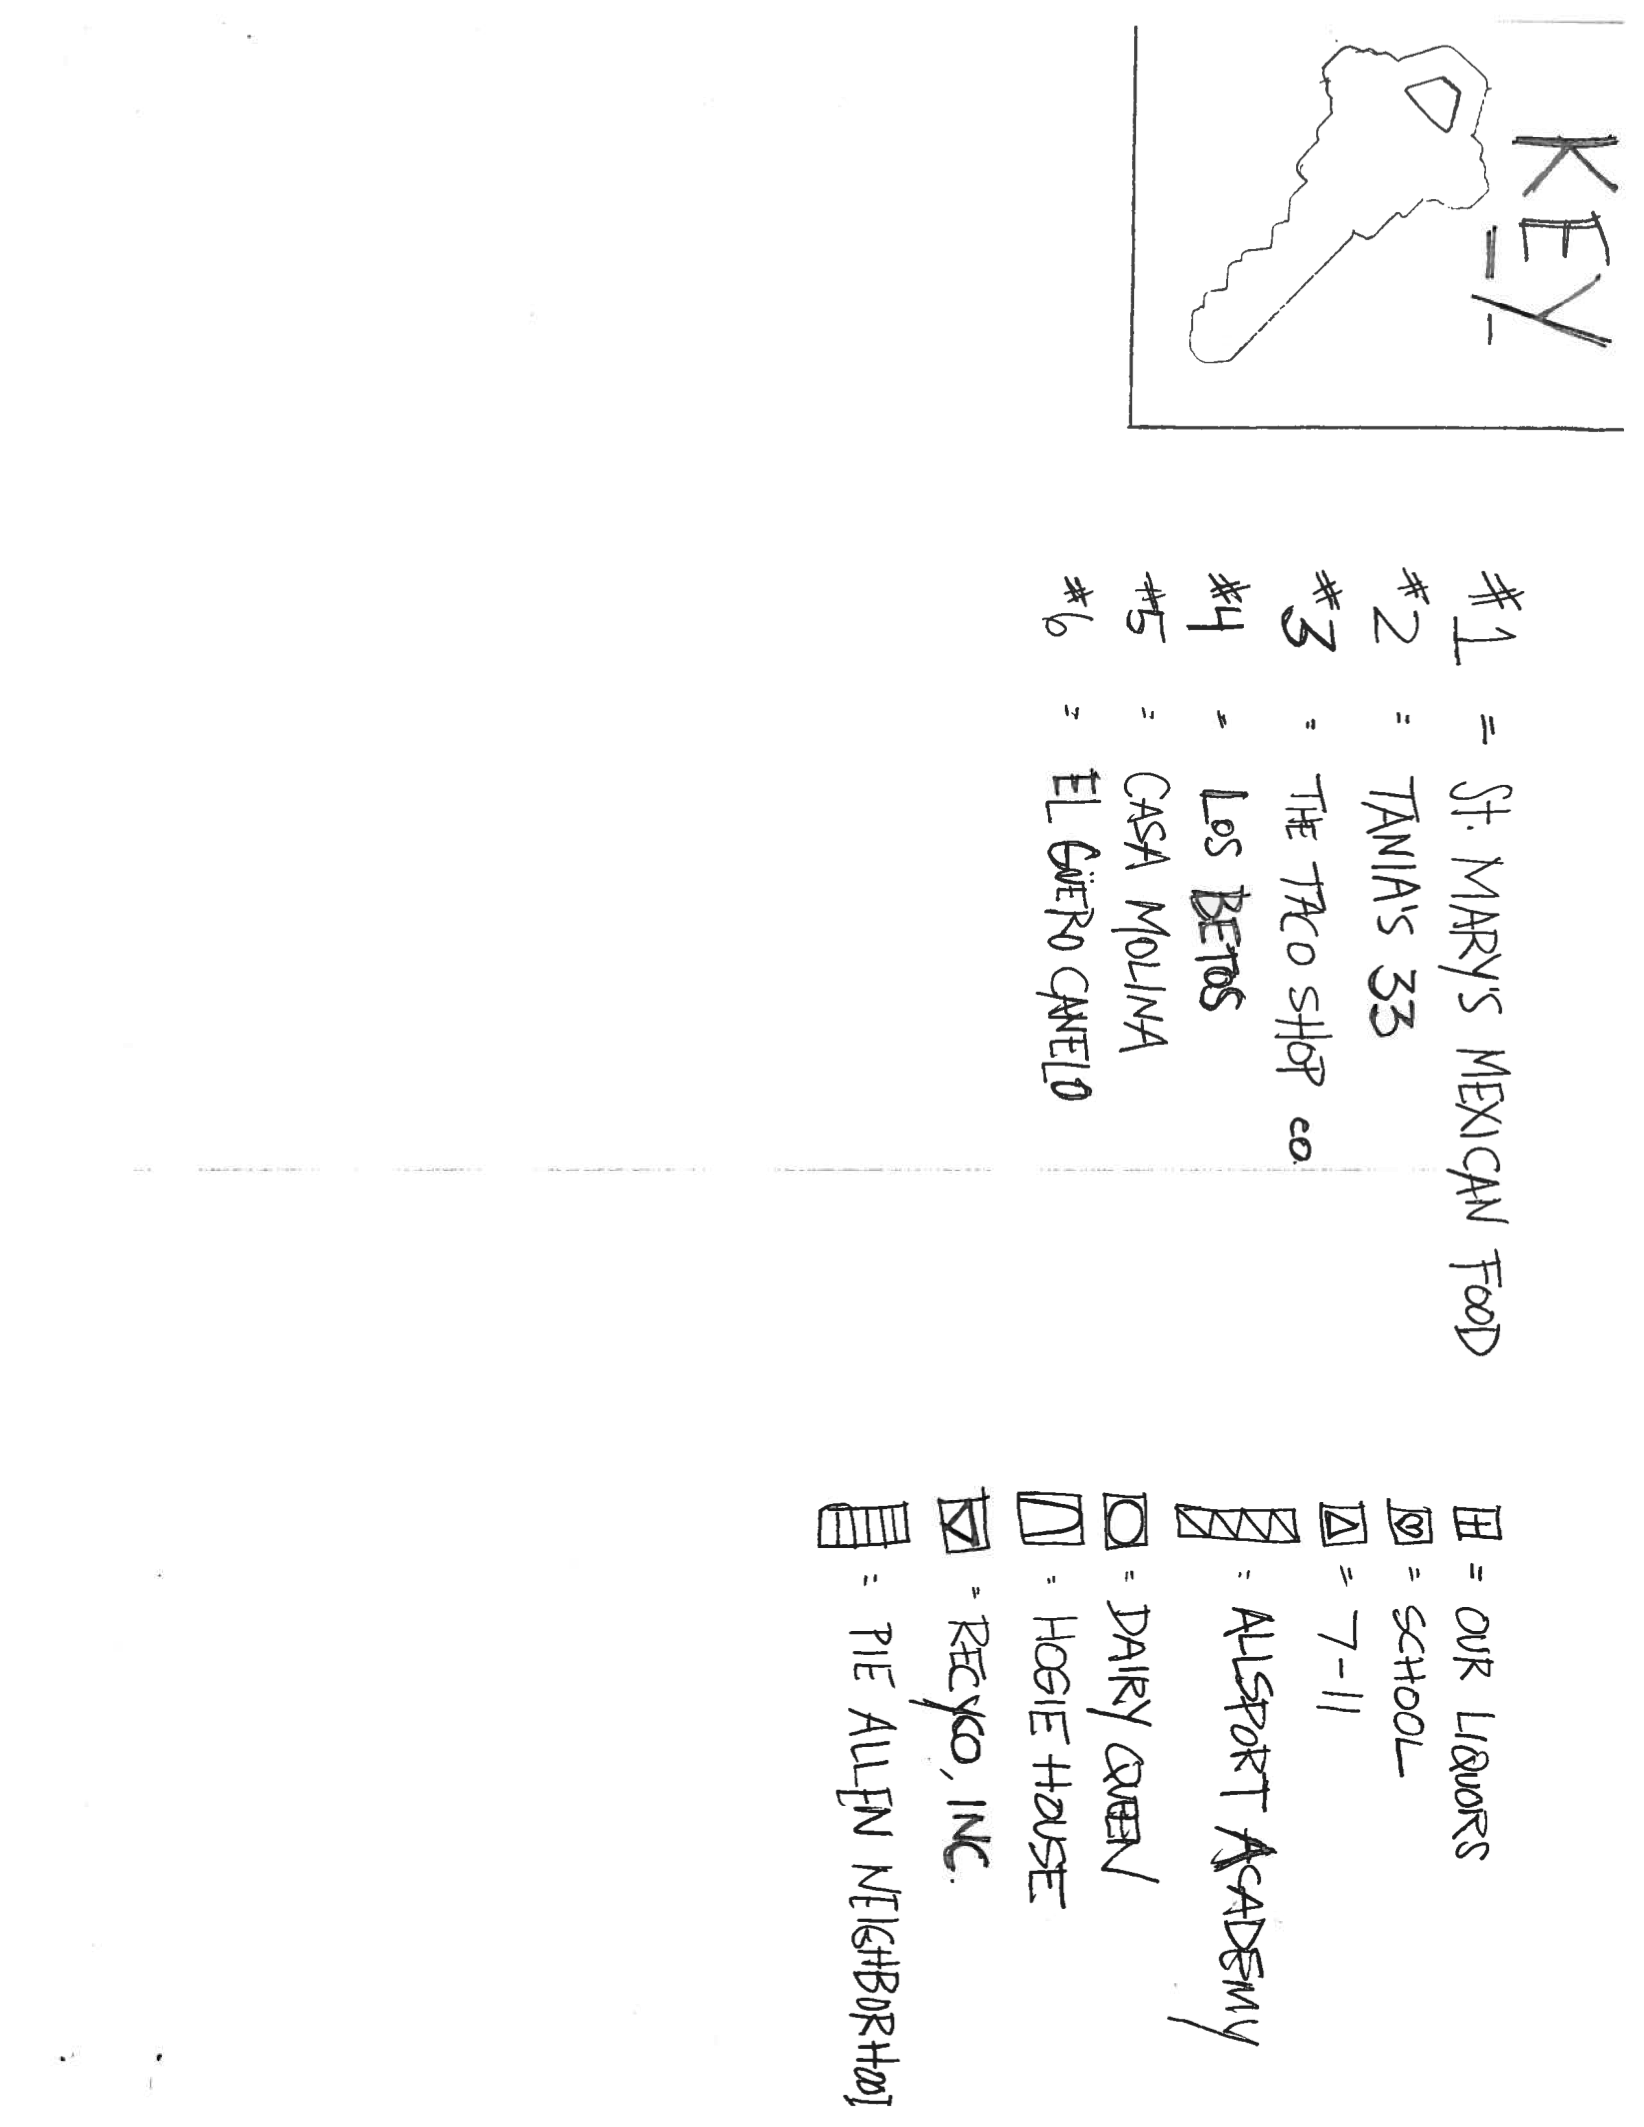 KEY
#1 = St. MARY'S MEXICAN FOOD
#2 = TANIA'S 33
#3 = THE TACO SHOP CO.
#4 = LOS BETOS
#5 = CASA MOLINA
#6 = EL GÜERO CANELO
= OUR LIQUORS
= SCHOOL
= 7-11
= ALLSPORT ACADEMY
= DAIRY QUEEN
= HOGIE HOUSE
= RECYCO, INC.
= PIE ALLEN NEIGHBORHOOD